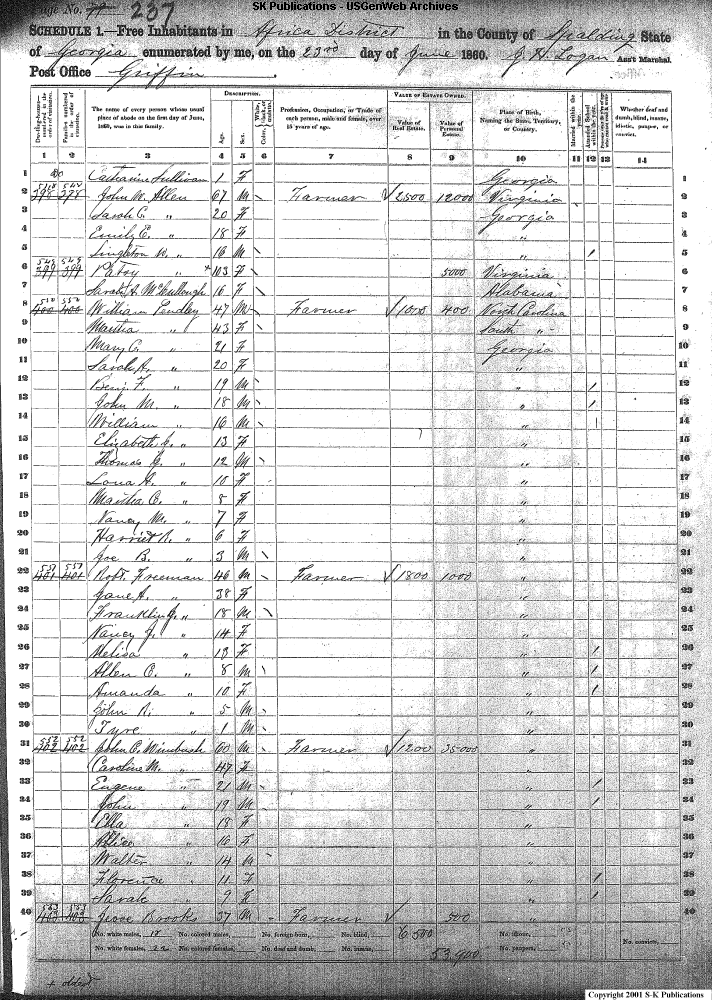 SK Publications - USGenWeb Archives
Page No. 237
SCHEDULE 1.—Free Inhabitants in Africa District in the County of Spalding State
of Georgia enumerated by me, on the 23rd day of June 1860. J. H. Logan Ass't Marshal.
Post Office Griffin.
DESCRIPTION. VALUE OF ESTATE OWNED.
Dwelling-houses numbered in the order of visitation. Families numbered in the order of visitation. The name of every person whose usual place of abode on the first day of June, 1860, was in this family. Age. Sex. Color, White, black, or mulatto. Profession, Occupation, or Trade of each person, male and female, over 15 years of age. Value of Real Estate. Value of Personal Estate. Place of Birth, Naming the State, Territory, or Country. Married within the year. Attended School within the year. Whether deaf and dumb, blind, insane, idiotic, pauper, or convict.
1 2 3 4 5 6 7 8 9 10 11 12 13 14
1 Catharine Sullivan 1 F Georgia 1
2 398 398 John W. Allen 67 M Farmer 2500 12000 Virginia 2
3 Sarah C. " 20 F Georgia 3
4 Emily E. " 18 F " 4
5 Singleton " 16 M " / 5
6 549 549 399 399 Patsy " + 103 F 5000 Virginia 6
7 Sarah A. McCullough 16 F Alabama 7
8 400 400 William Pendley 47 M Farmer 1000 400 North Carolina 8
9 Martha " 43 F South " 9
10 Mary C. " 21 F Georgia 10
11 Sarah A. " 20 F " 11
12 Benj. F. " 19 M " / 12
13 John M. " 18 M " / 13
14 William " 16 M " / 14
15 Elizabeth " 13 F " 15
16 Thomas " 12 M " 16
17 " 10 F " 17
18 Martha C. " 8 F " 18
19 Nancy M. " 7 F " 19
20 Harriet " 6 F " 20
21 Joe B. " 3 M " 21
22 401 401 Robt. Freeman 46 M Farmer 1800 1000 " 22
23 Jane A. " 38 F " 23
24 Franklin " 18 M " 24
25 Nancy J. " 14 F " 25
26 Melisa " 13 F " / 26
27 Allen C. " 8 M " / 27
28 Amanda " 10 F " / 28
29 John R. " 5 M " 29
30 Tyre " 1 M " 30
31 552 552 402 402 John C. Wimbush 60 M Farmer 1200 35000 " 31
32 Caroline M. " 47 F " 32
33 Eugene " 21 M " / 33
34 John " 19 M " / 34
35 Ella " 18 F " 35
36 Allice " 16 F " 36
37 Walter " 14 M " 37
38 Florence " 11 F " / 38
39 Sarah " 9 F " / 39
40 553 553 403 403 Brooks 37 M Farmer 500 " 40
No. white males, 18 No. colored males, No. foreign born, No. blind, 6500 No. idiotic, No. convicts,
No. white females, 22 No. colored females, No. deaf and dumb, No. insane, 53,900 No. paupers,
+ oldest
Copyright 2001 S-K Publications